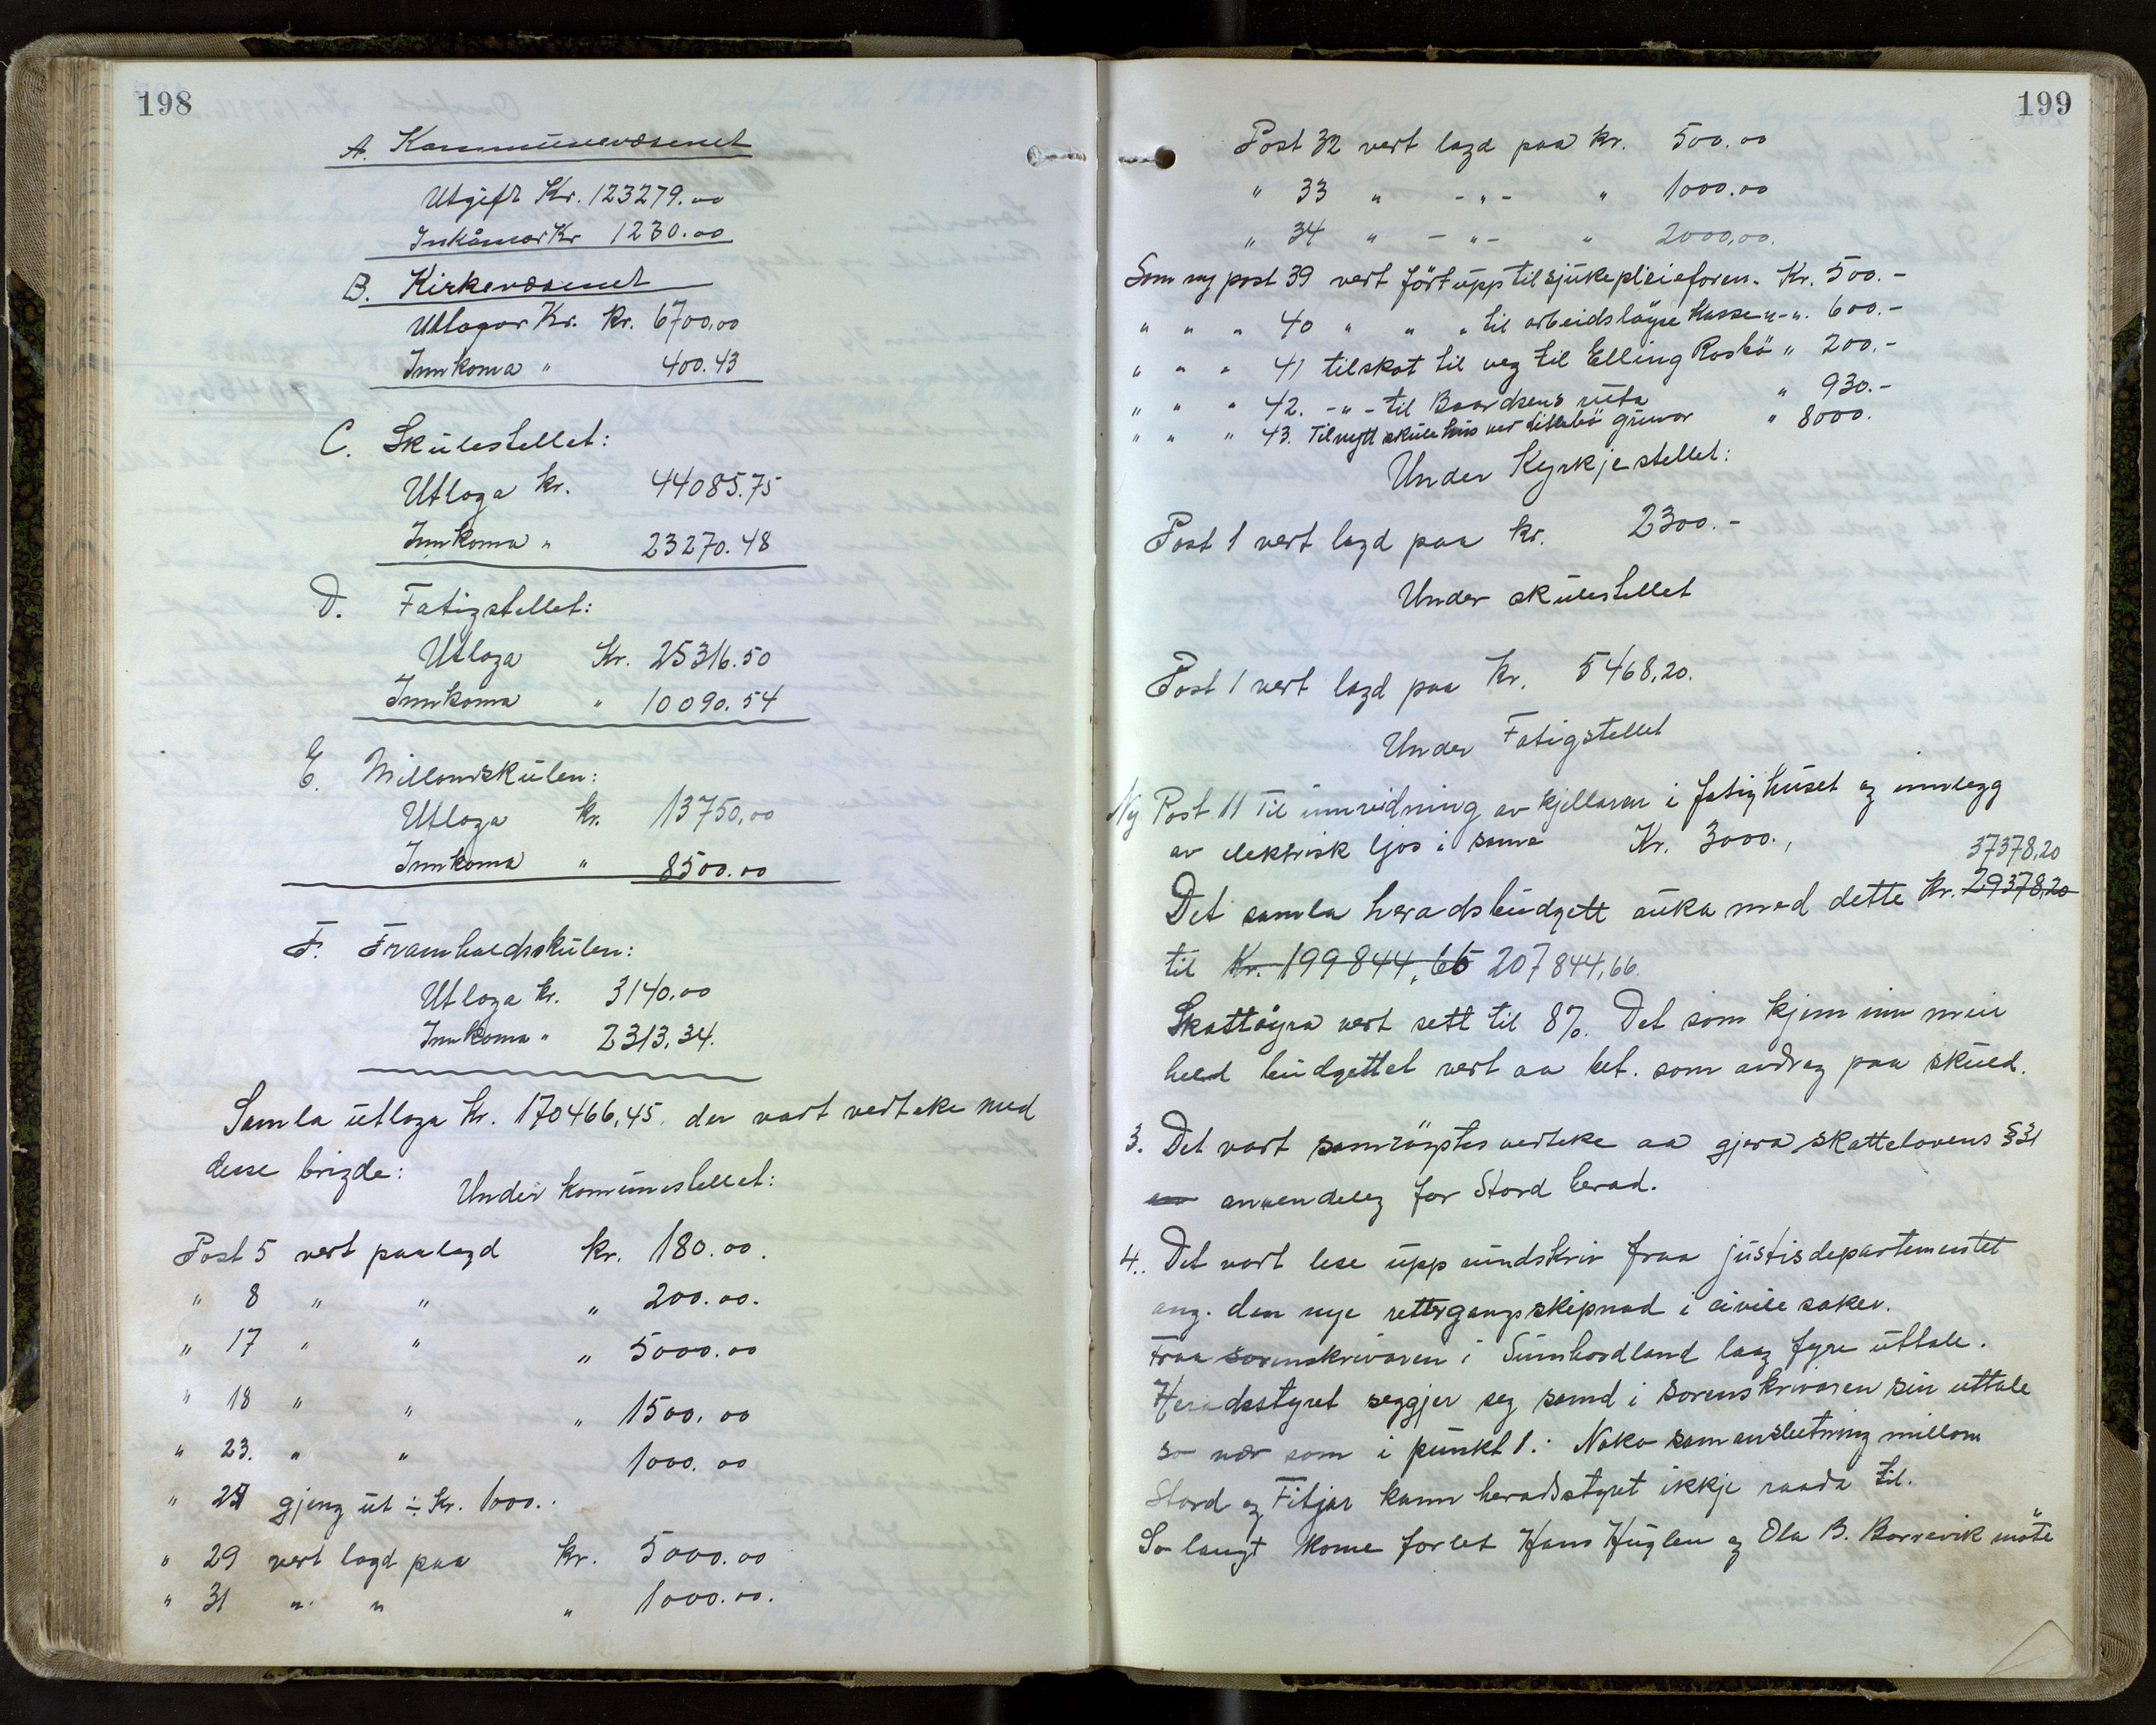 198
A. Kommunevæsenet
Utgift Kr. 123279.00
Inkåmor Kr 1230.00
B. Kirkevæsenet
Utlogor Kr. kr. 6700,00
Innkoma " 400.43
C. Skulestellet:
Utloga kr. 44085.75
Innkoma " 23270.48
D. Fatigstellet:
Utloga Kr. 25316.50
Innkoma " 10090.54
E. Millomskulen:
Utloga kr. 13750,00
Innkoma " 8500.00
F. Framhaldsskulen:
Utloga kr. 3140,00
Innkoma " 2313,34.
Samla utloga kr. 170466,45, der vart vedteke med
desse brigde:
Under komunestellet:
Post 5 vert paalagd kr. 180.00.
" 8 " " " 200.00.
" 17 " " " 5000.00
" 18 " " " 1500.00
" 23. " " 1000.00
" gjeng ut ÷ Kr. 1000..
" 29 vert lagd paa kr. 5000.00
" 31 " " " 1000.00.
199
Post 32 vert lagd paa kr. 500.00
" 33 " - " - " 1000.00
" 34 " - " - " 2000,00.
Som ny post 39 vert ført upp til sjukepleieforen. Kr. 500.-
" " " 40 " " " til arbeidsløyse kassen - ". 600.-
" " " 41 tilskot til veg til Elling Rosbø " 200.-
" " " 42. - " - til Baardsens ruta " 930.-
" " " 43. Til nytt skulehus ver litlabø gruvor " 8000.
Under Kyrkjestellet:
Post 1 vert lagd paa kr. 2300.-
Under skulestellet
Post 1 vert lagd paa kr. 5468,20.
Under Fatigstellet
Ny Post 11 Til innreidning av kjellaren i fatighuset og innlegg
av elektrisk ljos i sama Kr. 3000.,
37378,20
Det samla heradsbudgett auka med dette kr. 29378,20
til Kr. 199844,66 207844,66.
Skattøyra vert sett til 8%. Det som kjem inn meir
held budgettet vert aa bet. som avdrag paa skuld.
3. Det vart samrøystes vedteke aa gjera skattelovens § 31
anvendeleg for Stord herad.
4. Det vart lese upp rundskriv fraa justisdepartementet
ang. den nye rettergangsskipnad i civile saker.
Fraa sorenskrivaren i Sunnhordland laag fyre uttale.
Heradsstyret seggjer seg samd i Sorenskrivaren sin uttale
so nær som i punkt 1.: Noko samanslutning millom
Stord og Fitjar kann heradsstyret ikkje raada til.
So langt kome forlet Hans Huglen og Ola B. Borrevik møte